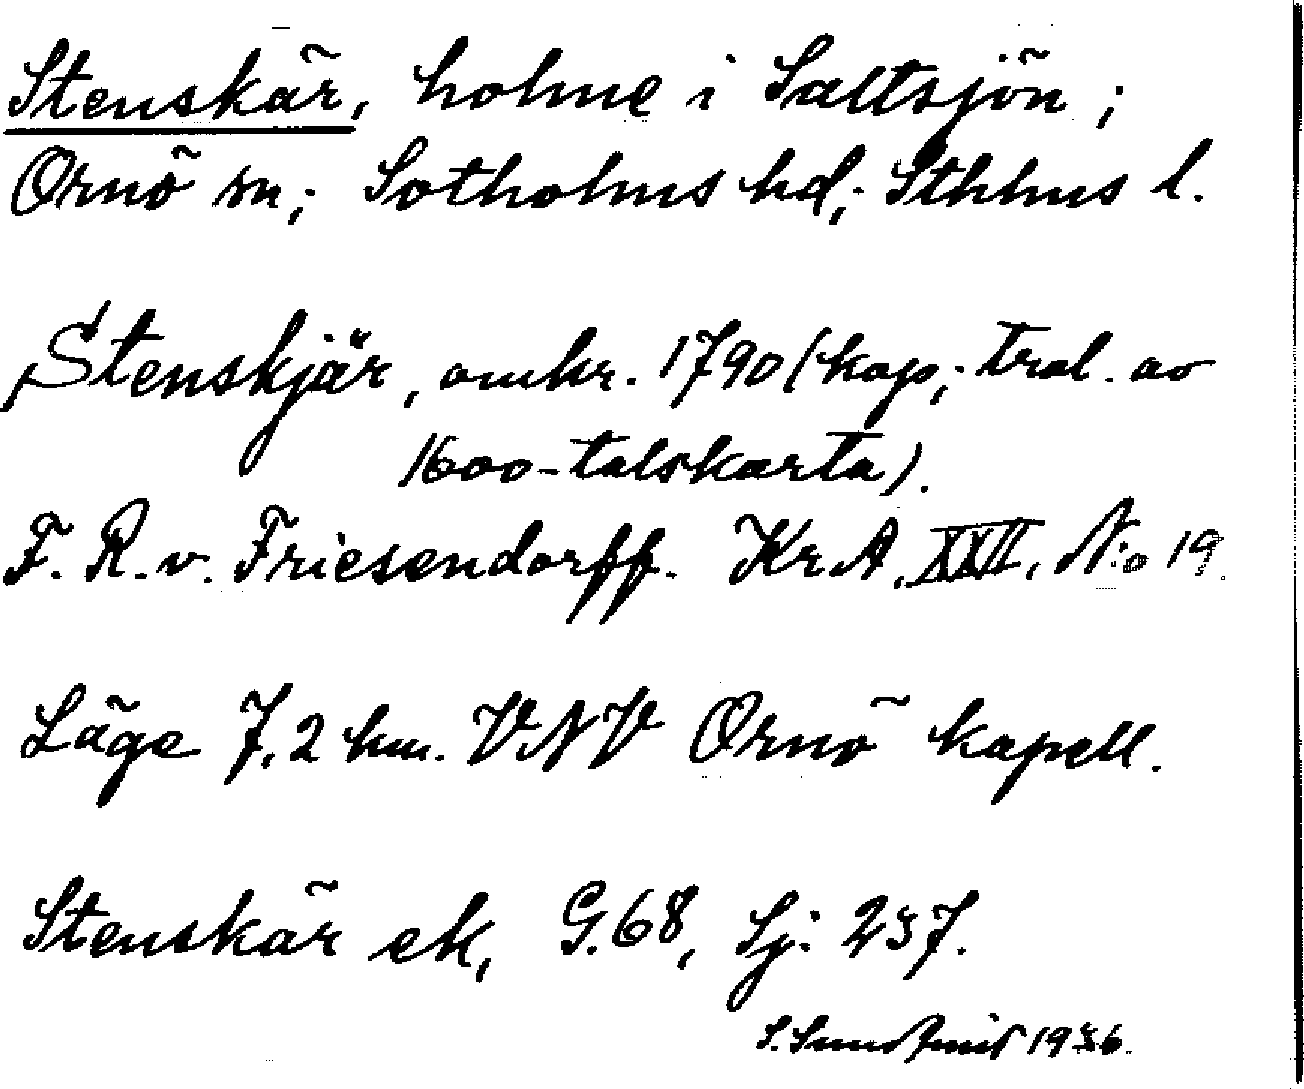 Stenskär, holme i Saltsjön;
Ornö sn; Sotholms hd; Sthlms l.
Stenskjär, omkr. 1790 (kop; trol. av
1600-talskarta).
F. R. v. Friesendorff. Kr.A, XXII, N:o 19.
Läge 7,2 km. VNV Ornö kapell.
Stenskär ek, G.68, Sj: 237.
S. 1936.